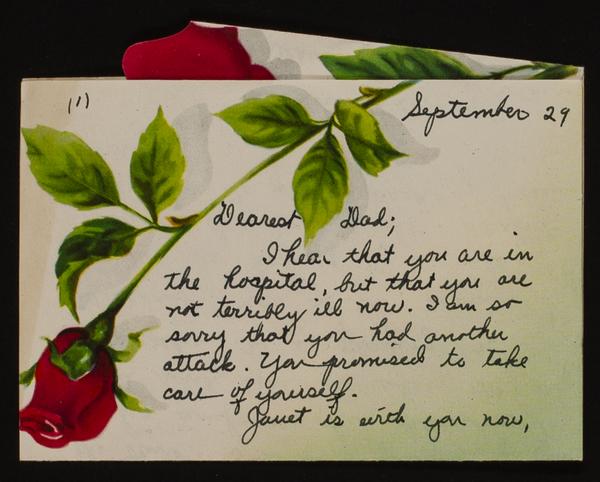 (1)
September 29
Dearest Dad;
I hear that you are in
the hospital, but that you are
not terribly ill now. I am so
sorry that you had another
attack. You promised to take
care of yourself.
Janet is with you now,